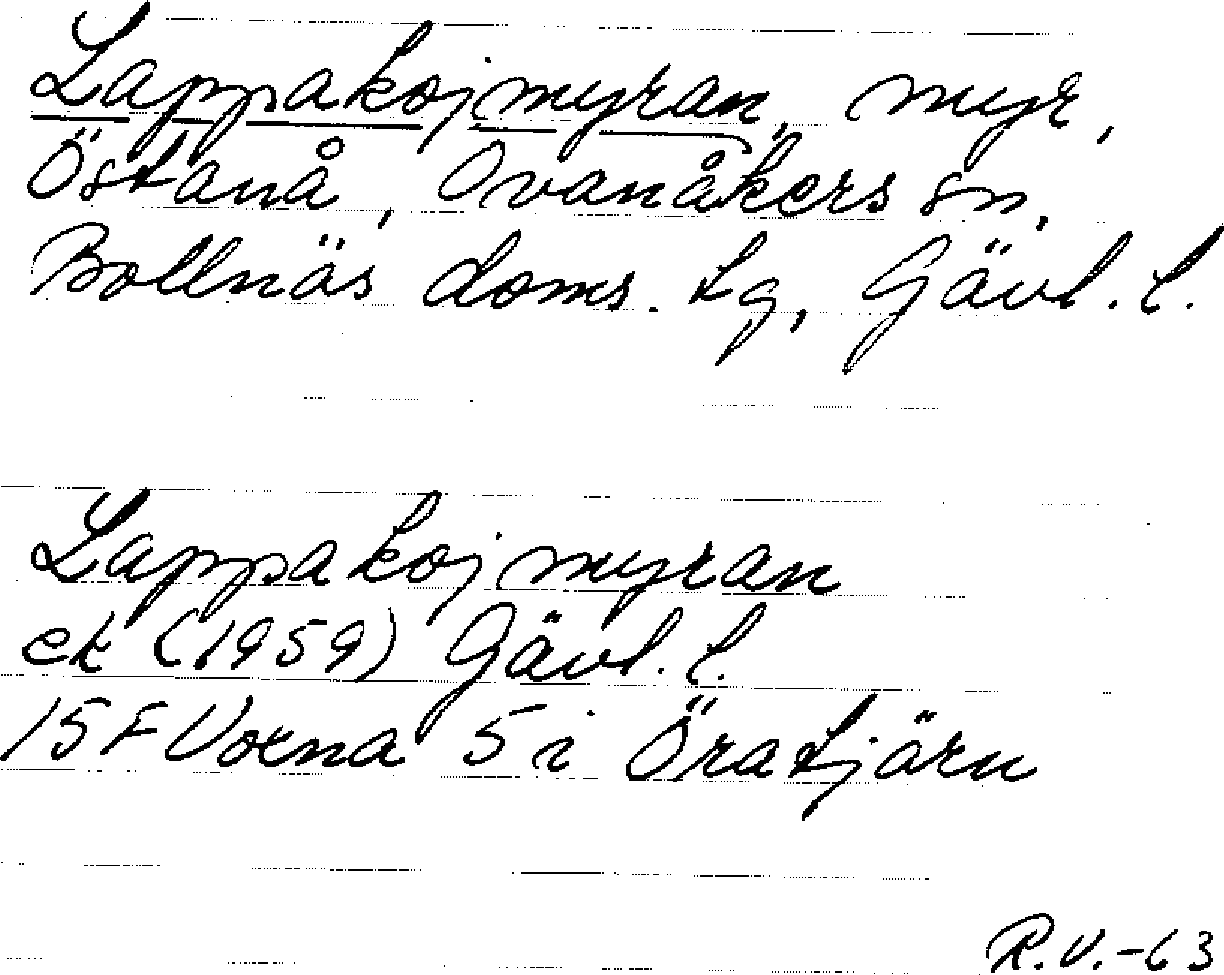 Lappakojmyran, myr,
Östanå, Ovanåkers sn,
Bollnäs doms. tg, Gävl. l.
Lappakojmyran
ek (1959) Gävl. l.
15F Voxna 5 i Öratjärn
R.V.-63